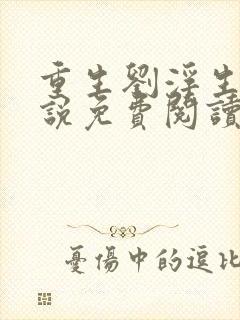 重生劉淫生
說免費閱讀
憂傷中的逗比